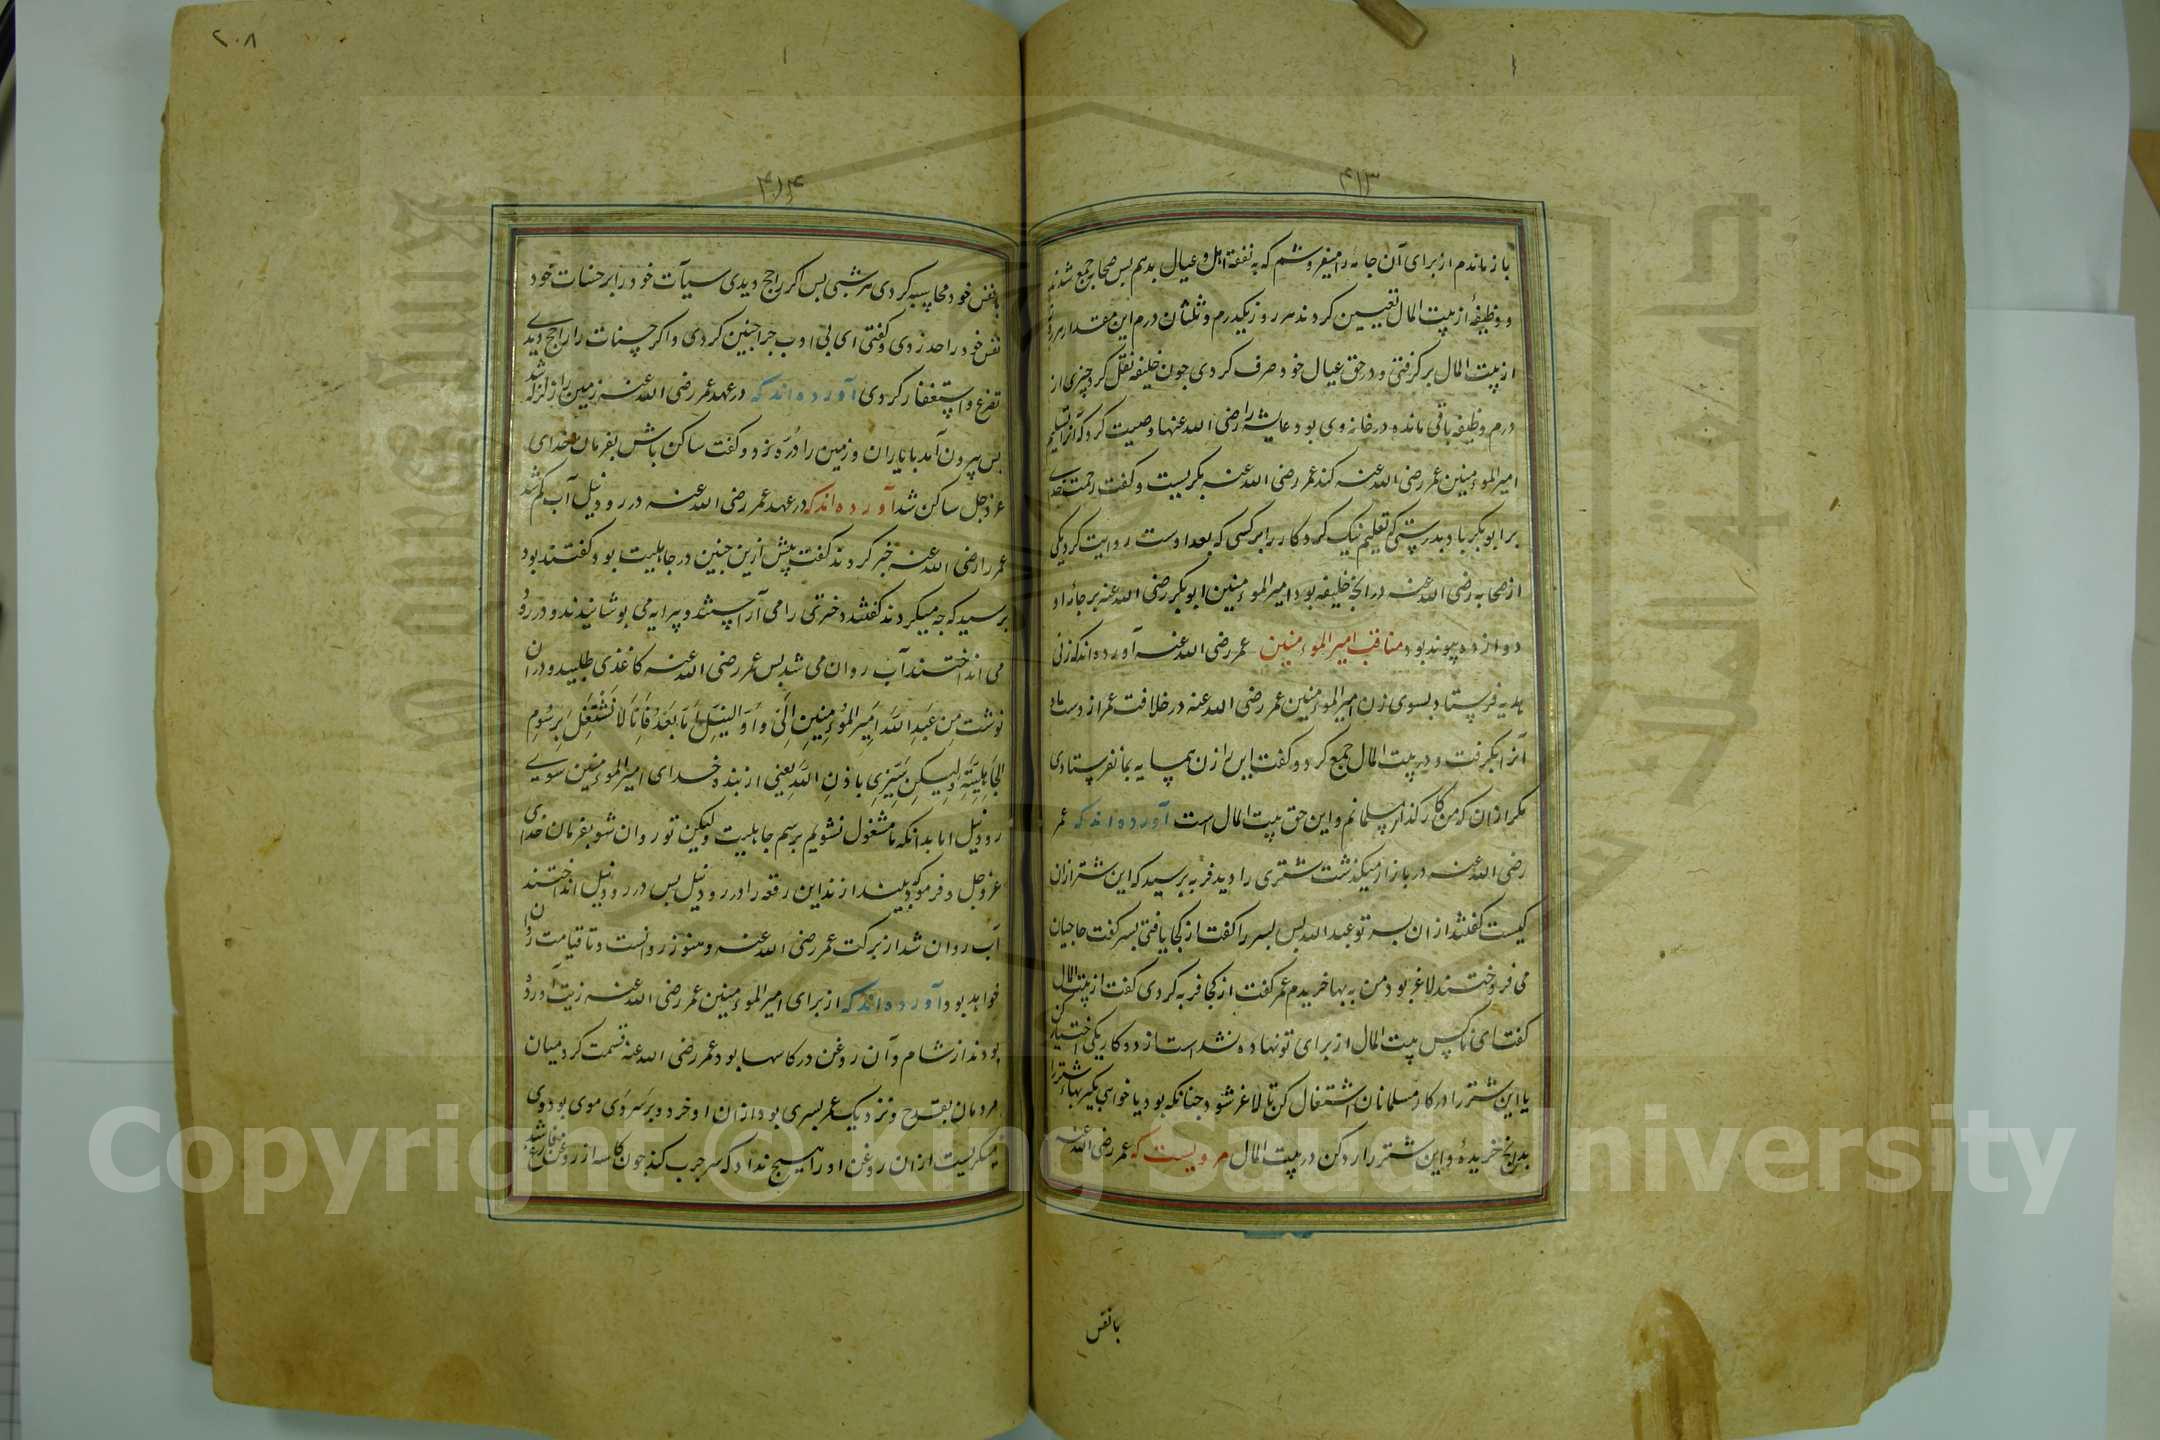 ۴۱۳
باز ماندم از برای آن جامه را میفروشم که به نفقهٔ اهل و عیال بدهم بس صحابه جمع شدند
و وظیفهٔ از بیت المال تعیین کردند هر روز یکدرم و ثلثان درم این مقدار هر روز
از بیت المال بر کرفتی و در حق عیال خود صرف کردی جون خلیفه نقل کرد چیزی از
درم وظیفه باقی مانده در خانه وی بود عایشه را رضی الله عنها وصیت کرد که آنرا تسلیم
امیر المؤمنین عمر رضی الله عنه کند عمر رضی الله عنه بکریست و کفت رحمت خدای
بر ابو بکر باد بدرستی که تعلیم نیک کرد کار را بر کسی که بعد اوست روایت کرد یکی
از صحابه رضی الله عنه در آنچه خلیفه بود امیر المؤمنین ابو بکر رضی الله عنه بر جامهٔ او
دوازده پیوند بود مناقب امیر المؤمنین عمر رضی الله عنه آورده اند که زنی
هدیه فرستاد بسوی زن امیر المؤمنین عمر رضی الله عنه در خلافت عمر از دست او
آنرا بکرفت و در بیت المال جمع کرد و کفت این را زن همسایه بما نفرستادی
مکر از آن که من کارکذار مسلمانم و این حق بیت المال است آورده اند که عمر
رضی الله عنه در بازار میکذشت شتری را دید فربه برسید که این شتر از آن
کیست کفتند از آن بسر تو عبد الله بس بسر را کفت از کجا یافتی بسر کفت حاجیان
می فروختند لاغر بود من به بها خریدم عمر کفت از کجا فربه کردی کفت از بیت المال
کفت ای ناکس بیت المال از برای تو نهاده نشد است از دو کار یکی اختیار کن
یا این شتر را در کار مسلمانان اشتغال کن تا لاغر شود جنانکه بود یا خواهی بکیر بهاء شتر را
بدانچ خریدهٔ و این شتر را رد کن در بیت المال مرویست که عمر رضی الله عنه
با نفس
۲۰۸
۴۱۴
با نفس خود محاسبه کردی هر شبی بس اکر راجح دیدی سیآت خود را بر حسنات خود
نفس خود را حد زدی و کفتی ای بی ادب جرا جنین کردی و اکر حسنات را راجح دیدی
تضرع و استغفار کردی آورده اند که در عهد عمر رضی الله عنه زمین را زلزله شد
بس بیرون آمد با یاران و زمین را دُرّه بزد و کفت ساکن باش بفرمان خدای
عز و جل ساکن شد آورده اند که در عهد عمر رضی الله عنه در رود نیل آب کم شد
عمر را رضی الله عنه خبر کردند کفت بیش ازین جنین در جاهلیت بود کفتند بود
برسید که جه میکردند کفتند دختری را می آراستند و پیرایه می بوشانیدند و در رود
می انداختند آب روان می شد بس عمر رضی الله عنه کاغذی طلبید و در ان
نوشت مِن عَبدِ اللهِ اَمیرِ المؤمِنینَ اِلی وادِ النیلِ اَمّا بَعدُ فَاِنّا لا نَشتَغِل بِرسُومِ
الجاهِلِیّةِ وَلیکِن سَیری باذنِ اللهِ یعنی از بندهٔ خدای امیر المؤمنین سوی
رود نیل اما بدانکه ما مشغول نشویم برسم جاهلیت ولیکن تو روان شو بفرمان خدای
عز و جل و فرمود که بیندازند این رقعه را در رود نیل بس در رود نیل انداختند
آب روان شد از برکت عمر رضی الله عنه و هنوز روانست و تا قیامت روان
خواهد بود آورده اند که از برای امیر المؤمنین عمر رضی الله عنه زیت آورده
بودند از شام و آن روغن در کاسها بود عمر رضی الله عنه قسمت کرد میان
مردمان بقدح و نزدیک عمر بسری بود از آن او خرد و بر سر وی موی بود وی
میکریست از ان روغن او را هیچ نداد که سر جرب کند جون کاسه از روغن فارغ شد
Copyright © King Saud University